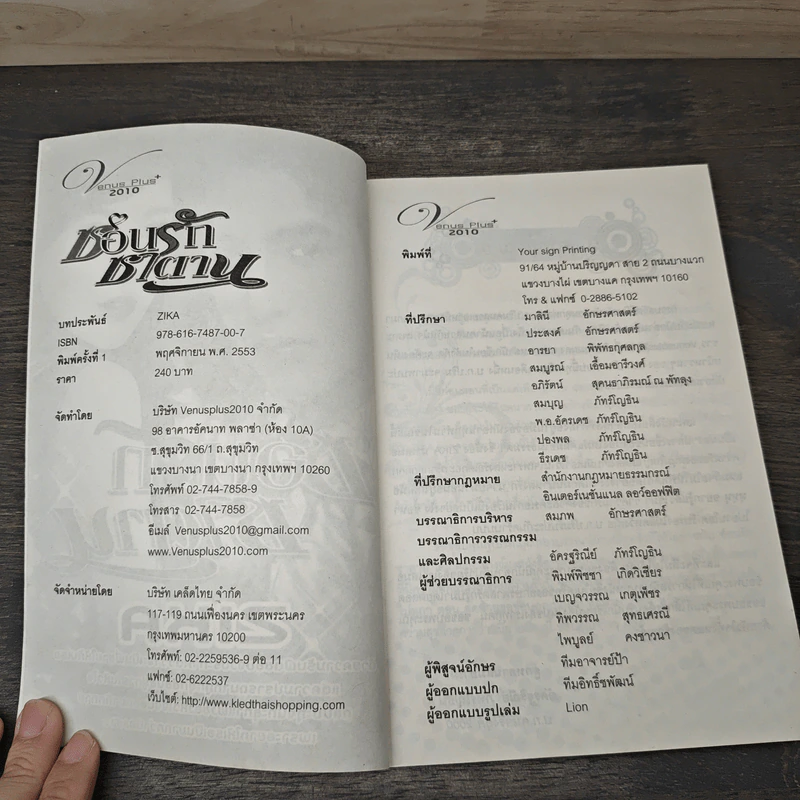 Venus Plus+
2010
ซ่อนรัก
ซาตาน
บทประพันธ์ ZIKA
ISBN 978-616-7487-00-7
พิมพ์ครั้งที่ 1 พฤศจิกายน พ.ศ. 2553
ราคา 240 บาท
จัดทำโดย บริษัท Venusplus2010 จำกัด
98 อาคารอัคนาท พลาซ่า (ห้อง 10A)
ซ.สุขุมวิท 66/1 ถ.สุขุมวิท
แขวงบางนา เขตบางนา กรุงเทพฯ 10260
โทรศัพท์ 02-744-7858-9
โทรสาร 02-744-7858
อีเมล์ Venusplus2010@gmail.com
www.Venusplus2010.com
จัดจำหน่ายโดย บริษัท เคล็ดไทย จำกัด
117-119 ถนนเฟื่องนคร เขตพระนคร
กรุงเทพมหานคร 10200
โทรศัพท์: 02-2259536-9 ต่อ 11
แฟกซ์: 02-6222537
เว็บไซต์: http://www.kledthaishopping.com
Venus Plus+
2010
พิมพ์ที่ Your sign Printing
91/64 หมู่บ้านปริญญดา สาย 2 ถนนบางแวก
แขวงบางไผ่ เขตบางแค กรุงเทพฯ 10160
โทร & แฟกซ์ 0-2886-5102
ที่ปรึกษา มาลินี อักษรศาสตร์
ประสงค์ อักษรศาสตร์
อารยา พิพัทธกุศลกุล
สมบูรณ์ เอื้อมอารีวงศ์
อภิรัตน์ สุคนธาภิรมณ์ ณ พัทลุง
สมบุญ ภัทร์โญธิน
พ.อ.อัครเดช ภัทร์โญธิน
ปองพล ภัทร์โญธิน
ธีรเดช ภัทร์โญธิน
ที่ปรึกษากฎหมาย สำนักงานกฎหมายธรรมกรณ์
อินเตอร์เนชั่นแนล ลอว์ออฟฟิต
บรรณาธิการบริหาร สมภพ อักษรศาสตร์
บรรณาธิการวรรณกรรม
และศิลปกรรม อัครฐริณีย์ ภัทร์โญธิน
ผู้ช่วยบรรณาธิการ พิมพ์พิชชา เกิดวิเชียร
เบญจวรรณ เกตุเพ็ชร
ทิพวรรณ สุทธเศรณี
ไพบูลย์ คงชาวนา
ผู้พิสูจน์อักษร ทีมอาจารย์ป้า
ผู้ออกแบบปก ทีมอิทธิ์ชพัฒน์
ผู้ออกแบบรูปเล่ม Lion